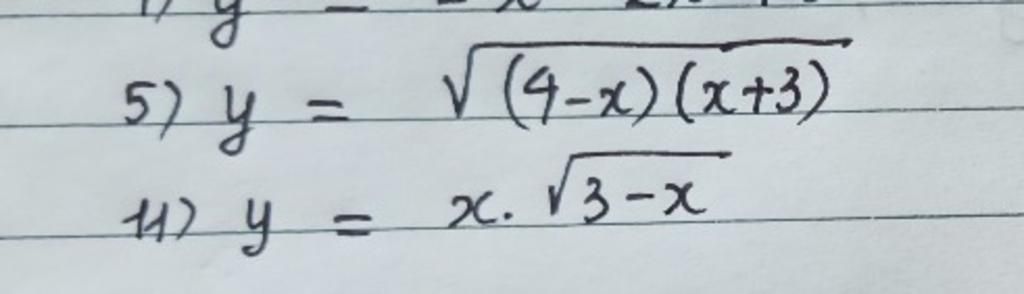 5) y = √(4-x)(x+3)
11) y = x. √3-x